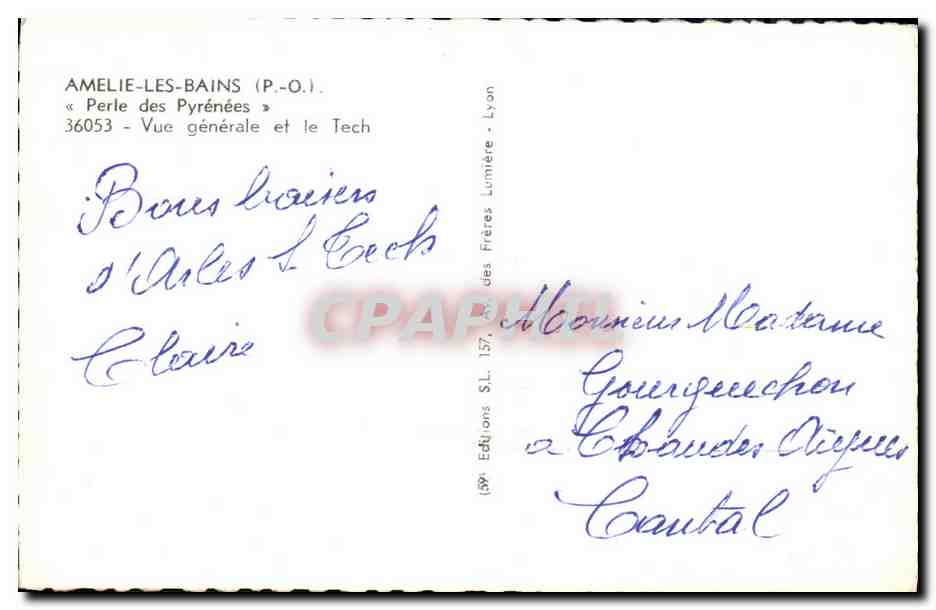 AMELIE-LES-BAINS (P.-O.).
« Perle des Pyrénées »
36053 - Vue générale et le Tech
Bons baisers
d'Arles s. Tech
Claire
(59) Editions S.L. 157, Av. des Frères Lumière - Lyon
CPAPHIL
Monsieur Madame
Gourguechon
a Chaudes Aigues
Cantal